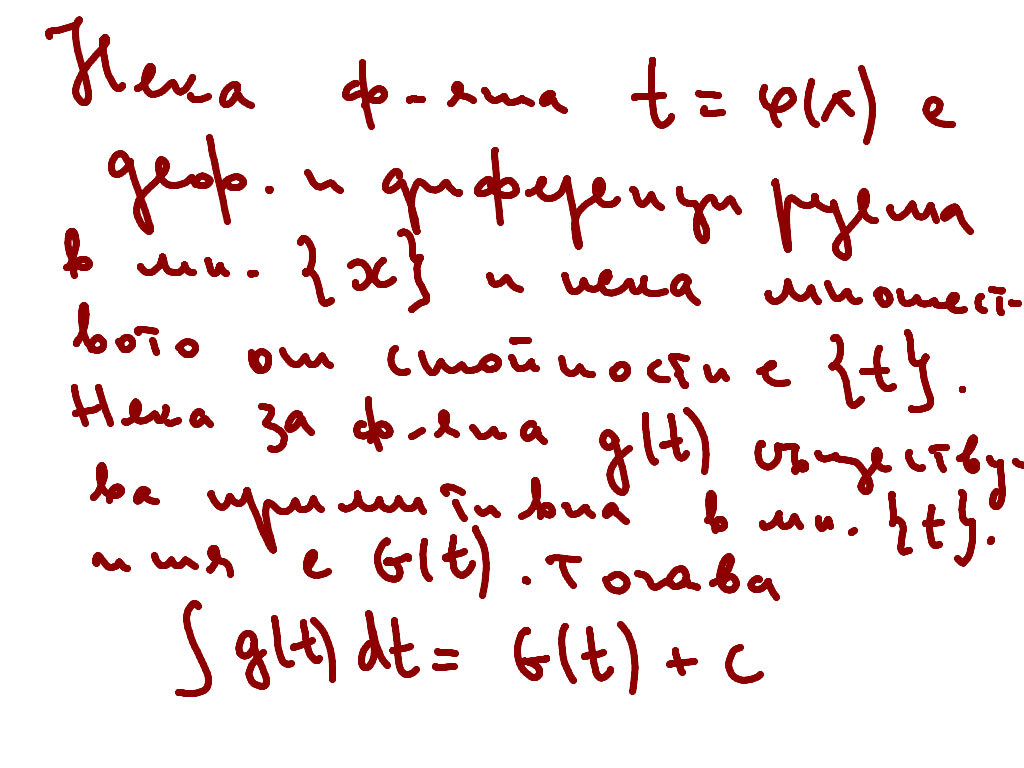 Нека ф-ята t = φ(x) е
деф. и диференцируема
в мн. {x} и нека множест-
вото от стойности е {t}.
Нека за ф-ята g(t) съществу-
ва примитивна в мн. {t}.
и тя е G(t). Тогава
∫ g(t) dt = G(t) + C